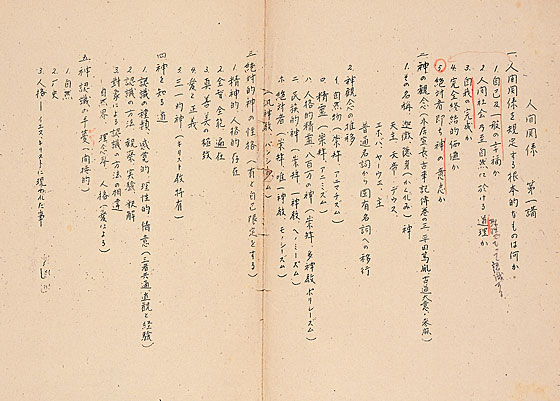 第一講
一、人間関係を規定する根本的なものは何か。
1 自己及一般の幸福か
2 人間社会乃至自然に於ける道理か
3 自我の完成か
4 完全終始的価値か
5 絶対者即ち神の意志か
二 神の観念(本居宣長古事記伝巻の三 平田篤胤古道大意・参照)
1. その名称 迦微、隠身(かくれみ) 神
天主 天帝 デウス、
エホバ、ヤーウエ、主
普通名詞から固有名詞への移行
2 神観念の推移
イ 自然物(崇拝 アニマチズム)
ロ 精霊(崇拝 アニミズム)
ハ 人格的精霊 八百万の神(崇拝・多神教 ポリシーズム)
ニ 民族的神(崇拝 単神教 ヘノシーズム)
ホ 絶対者(崇拝 唯一神教 モノシーズム)
(汎神教 パンシーズム)
三 絶対的神の性格(有と自己限定とする)
1 精神的人格的存在
2 全智 全能 遍在
3 真善美の極致
4 愛と正義
5 三一的神(キリスト教特有)
四 神を知る道
1. 認識の種類、感覚的 理性的 情意(三者共通直観と経験)
2 認識の方法 観察 実験 執解
3 対象による認識の方法の相違
自然界、理念界、人格(愛による)
五 神認識の手蔓(間接的)
1 自然
2 歴史
3 人格―イエスキリストに現われた事